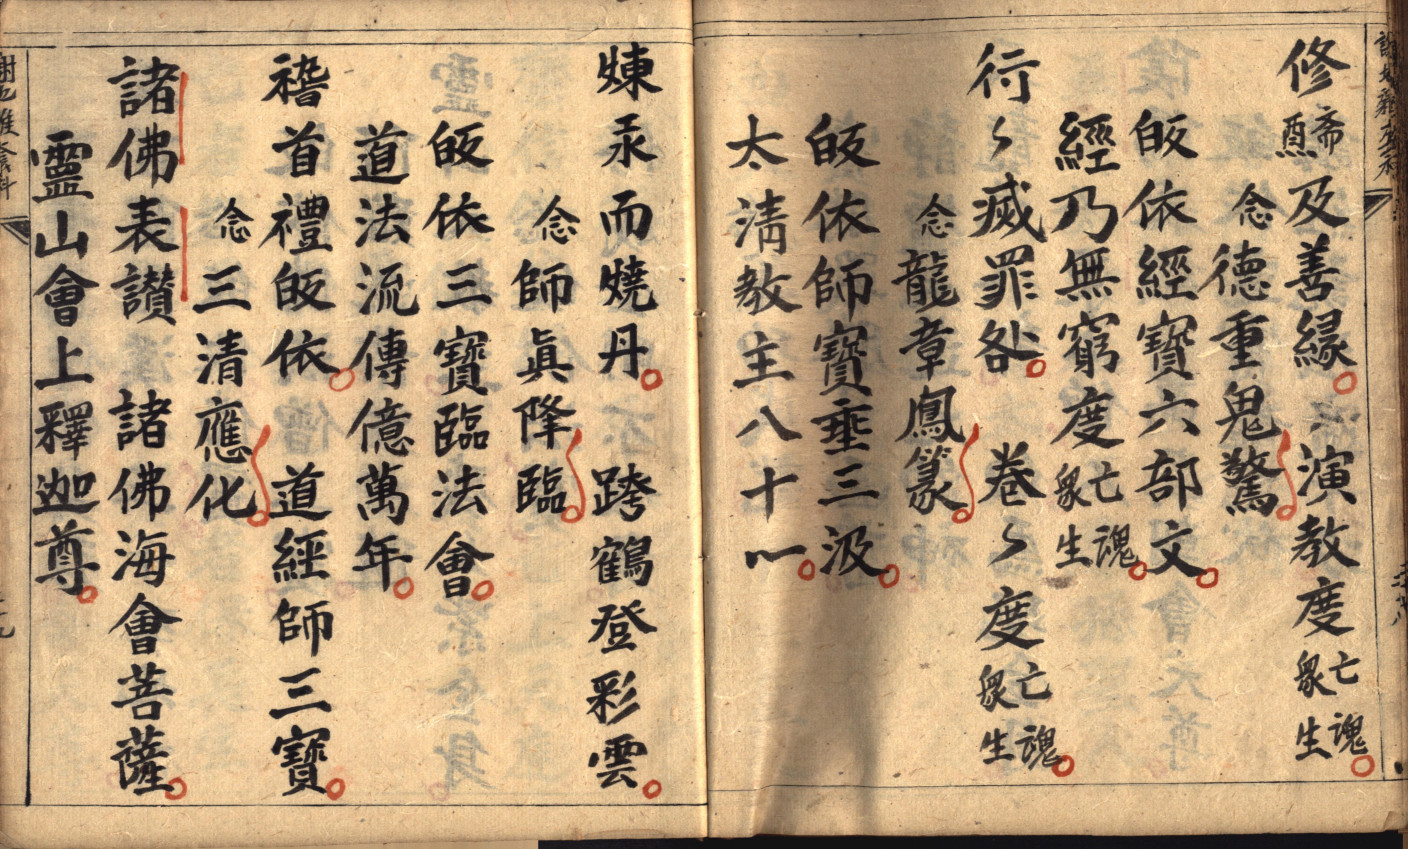 修斋悳及善縁 演教度亡魂衆生
念德重鬼驚
皈依經寶六部文
經乃無窮度亡魂衆生
行〻滅罪咎 卷〻度亡魂衆生
念龍章鳳篆
皈依師寶垂三汲
太清教主八十一
煉汞而燒丹 跨鶴登彩雲
念師眞降臨
皈依三寶臨法會
道法流傳億萬年
稽首禮皈依 道經師三寶
念三清應化
諸佛表讃 諸佛海會菩薩
靈山會上釋迦尊